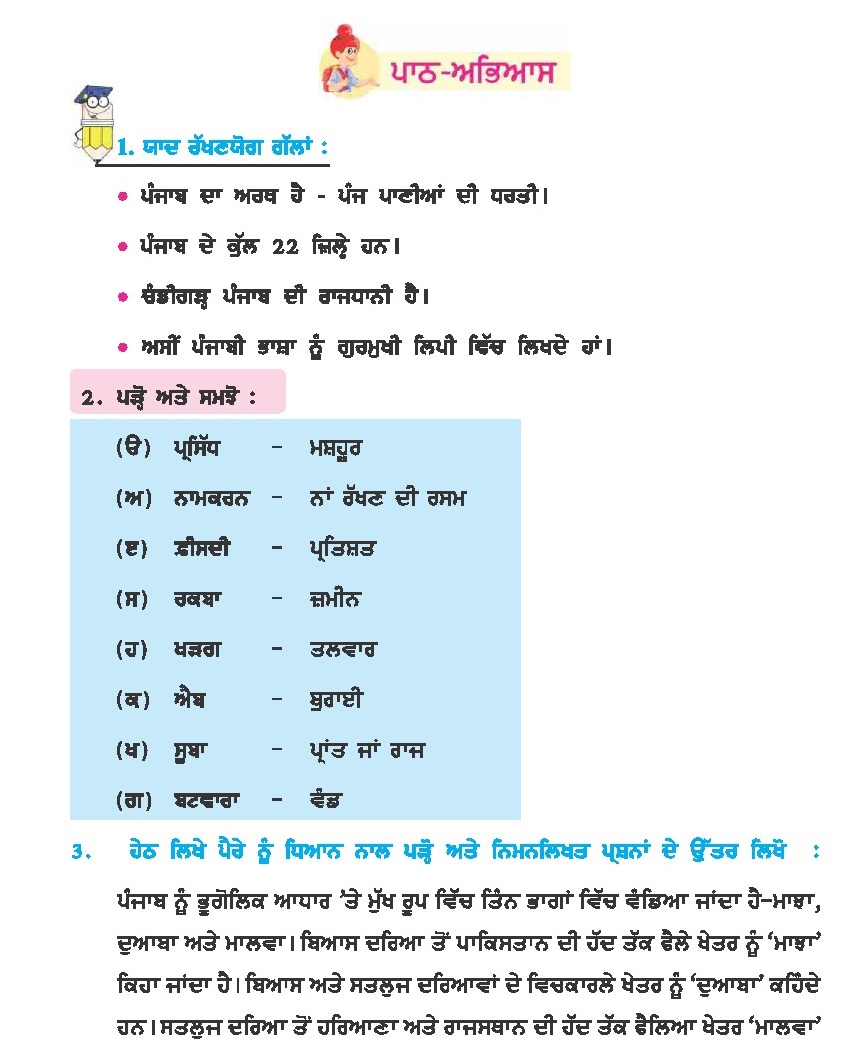 ਪਾਠ-ਅਭਿਆਸ
1. ਯਾਦ ਰੱਖਣਯੋਗ ਗੱਲਾਂ :
• ਪੰਜਾਬ ਦਾ ਅਰਥ ਹੈ - ਪੰਜ ਪਾਣੀਆਂ ਦੀ ਧਰਤੀ।
• ਪੰਜਾਬ ਦੇ ਕੁੱਲ 22 ਜ਼ਿਲ੍ਹੇ ਹਨ।
• ਚੰਡੀਗੜ੍ਹ ਪੰਜਾਬ ਦੀ ਰਾਜਧਾਨੀ ਹੈ।
• ਅਸੀਂ ਪੰਜਾਬੀ ਭਾਸ਼ਾ ਨੂੰ ਗੁਰਮੁਖੀ ਲਿਪੀ ਵਿੱਚ ਲਿਖਦੇ ਹਾਂ।
2. ਪੜ੍ਹੋ ਅਤੇ ਸਮਝੋ :
(ੳ) ਪ੍ਰਸਿੱਧ - ਮਸ਼ਹੂਰ
(ਅ) ਨਾਮਕਰਨ - ਨਾਂ ਰੱਖਣ ਦੀ ਰਸਮ
(ੲ) ਫ਼ੀਸਦੀ - ਪ੍ਰਤਿਸ਼ਤ
(ਸ) ਰਕਬਾ - ਜ਼ਮੀਨ
(ਹ) ਖੜਗ - ਤਲਵਾਰ
(ਕ) ਐਬ - ਬੁਰਾਈ
(ਖ) ਸੂਬਾ - ਪ੍ਰਾਂਤ ਜਾਂ ਰਾਜ
(ਗ) ਬਟਵਾਰਾ - ਵੰਡ
3. ਹੇਠ ਲਿਖੇ ਪੈਰੇ ਨੂੰ ਧਿਆਨ ਨਾਲ ਪੜ੍ਹੋ ਅਤੇ ਨਿਮਨਲਿਖਤ ਪ੍ਰਸ਼ਨਾਂ ਦੇ ਉੱਤਰ ਲਿਖੋ :
ਪੰਜਾਬ ਨੂੰ ਭੂਗੋਲਿਕ ਆਧਾਰ ’ਤੇ ਮੁੱਖ ਰੂਪ ਵਿੱਚ ਤਿੰਨ ਭਾਗਾਂ ਵਿੱਚ ਵੰਡਿਆ ਜਾਂਦਾ ਹੈ-ਮਾਝਾ,
ਦੁਆਬਾ ਅਤੇ ਮਾਲਵਾ। ਬਿਆਸ ਦਰਿਆ ਤੋਂ ਪਾਕਿਸਤਾਨ ਦੀ ਹੱਦ ਤੱਕ ਫੈਲੇ ਖੇਤਰ ਨੂੰ ‘ਮਾਝਾ’
ਕਿਹਾ ਜਾਂਦਾ ਹੈ। ਬਿਆਸ ਅਤੇ ਸਤਲੁਜ ਦਰਿਆਵਾਂ ਦੇ ਵਿਚਕਾਰਲੇ ਖੇਤਰ ਨੂੰ ‘ਦੁਆਬਾ’ ਕਹਿੰਦੇ
ਹਨ। ਸਤਲੁਜ ਦਰਿਆ ਤੋਂ ਹਰਿਆਣਾ ਅਤੇ ਰਾਜਸਥਾਨ ਦੀ ਹੱਦ ਤੱਕ ਫੈਲਿਆ ਖੇਤਰ ‘ਮਾਲਵਾ’